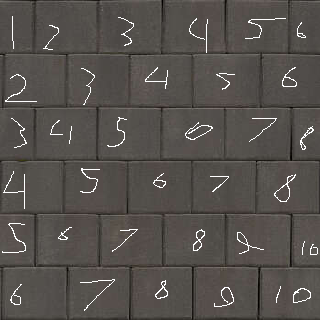 1 2 3 4 5 6
2 3 4 5 6
3 4 5 6 7 8
4 5 6 7 8
5 6 7 8 9 10
6 7 8 9 10